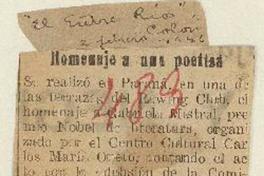 "El Entre Ríos"
Colón
2 febrero 1946
Homenaje a una poetisa
Se realizó en Paraná, en una de
las terrazas del Rowing Club, el
homenaje a Gabriela Mistral, pre
mio Nobel de literatura, organi
zado por el Centro Cultural Car
los María Onetto, contando el ac
to con la adhesión de la Comi-
483